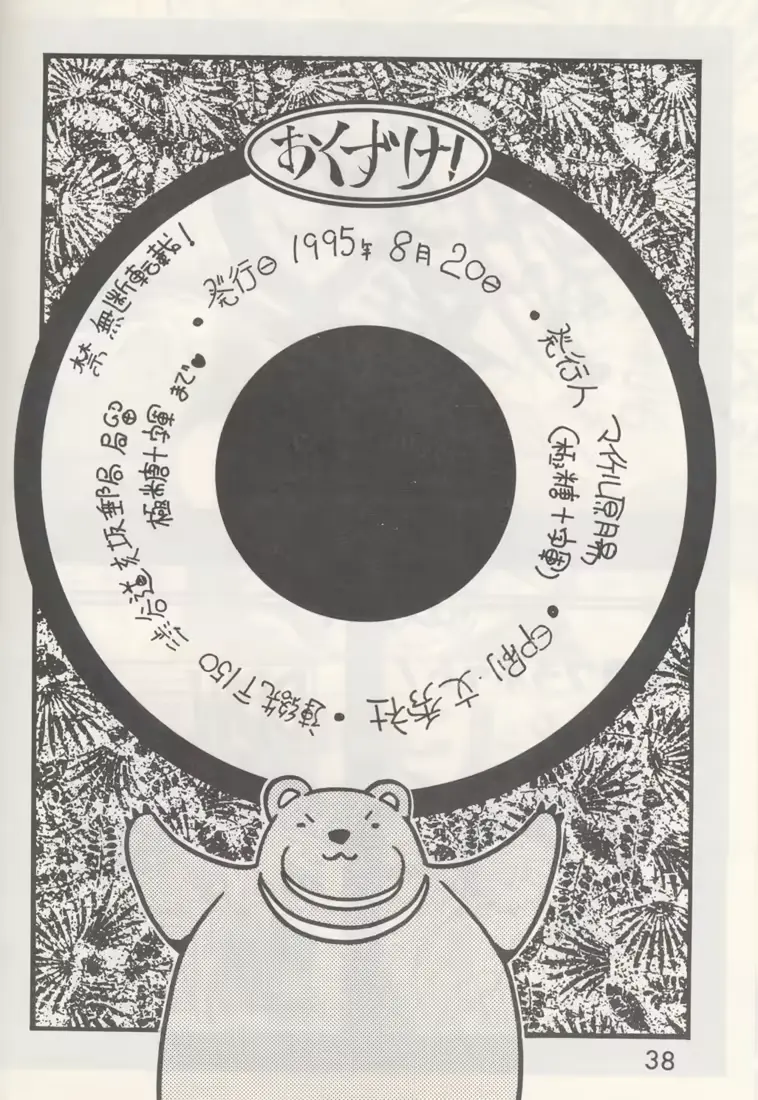 おくずけ!
発行日 1995年 8月 20日
・発行人 マイケル原腸
(極糖十字軍)
・印刷・文秀社
・連絡先 〒150
渋谷道玄坂郵局局留
極糖十字軍 まで
禁 無断転載!
38